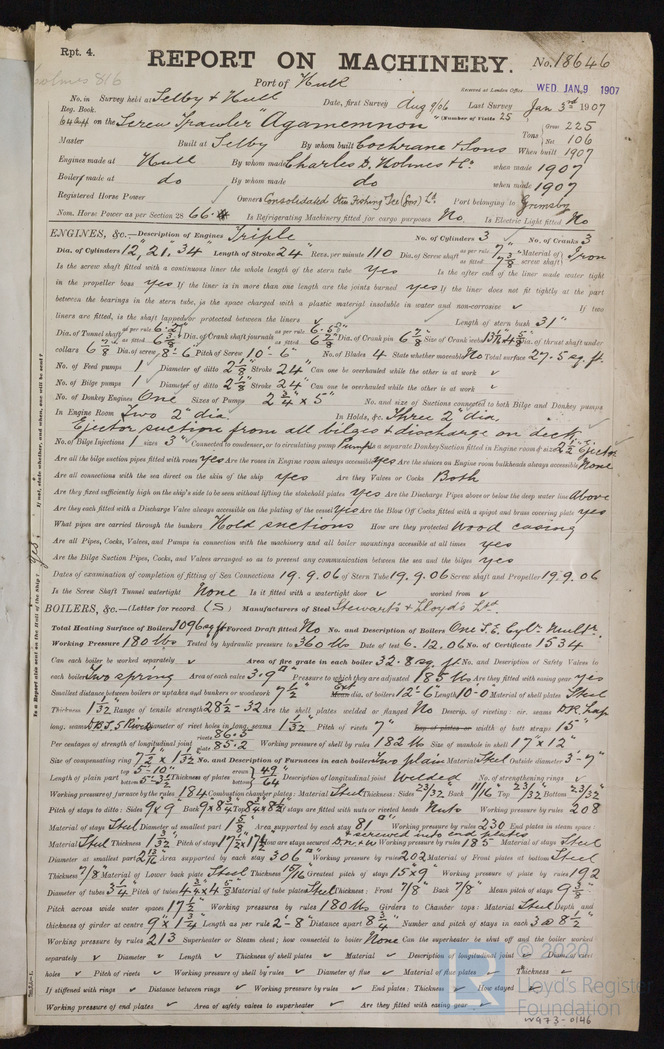 Rpt. 4.
REPORT ON MACHINERY.
No. 18646
Holmes 816
Port of Hull
Received at London Office WED. JAN. 9 1907
No. in Survey held at Selby & Hull Date, first Survey Aug 9/06 Last Survey Jan 3rd 1907
Reg. Book.
(Number of Visits 25)
on the Screw Trawler "Agamemnon" Tons Gross 225 Net 106
Master Built at Selby By whom built Cochrane & Sons When built 1907
Engines made at Hull By whom made Charles D. Holmes & Co when made 1907
Boilers made at do By whom made do when made 1907
Registered Horse Power Owners Consolidated Stm Fishing Ice (Gsy) Ld Port belonging to Grimsby
Nom. Horse Power as per Section 28 66 Is Refrigerating Machinery fitted for cargo purposes No Is Electric Light fitted No
ENGINES, &c.—Description of Engines Triple No. of Cylinders 3 No. of Cranks 3
Dia. of Cylinders 12", 21", 34" Length of Stroke 24" Revs. per minute 110 Dia. of Screw shaft as per rule 7" as fitted 7 3/8 Material of screw shaft Iron
Is the screw shaft fitted with a continuous liner the whole length of the stern tube yes Is the after end of the liner made water tight
in the propeller boss yes If the liner is in more than one length are the joints burned yes If the liner does not fit tightly at the part
between the bearings in the stern tube, is the space charged with a plastic material insoluble in water and non-corrosive ✓ If two
liners are fitted, is the shaft lapped or protected between the liners ✓ Length of stern bush 31"
Dia. of Tunnel shaft as per rule 6.27" as fitted 6 5/8 Dia. of Crank shaft journals as per rule as fitted 6 7/8 Dia. of Crank pin 6 7/8 Size of Crank webs Dia. of thrust shaft under
collars 6 7/8 Dia. of screw 8'-6" Pitch of Screw 10'-6" No. of Blades 4 State whether moveable No Total surface 27.5 sq. ft.
No. of Feed pumps 1 Diameter of ditto 2 7/8 Stroke 24" Can one be overhauled while the other is at work ✓
No. of Bilge pumps 1 Diameter of ditto 2 7/8 Stroke 24" Can one be overhauled while the other is at work ✓
No. of Donkey Engines One Sizes of Pumps 2 3/4" x 5" No. and size of Suctions connected to both Bilge and Donkey pumps
In Engine Room Two 2" dia. In Holds, &c. Three 2" dia.
Ejector suction from all bilges & discharge on deck
No. of Bilge Injections 1 sizes 3" Connected to condenser, or to circulating pump Pump Is a separate Donkey Suction fitted in Engine room & size 2 1/2" Ejector
Are all the bilge suction pipes fitted with roses yes Are the roses in Engine room always accessible yes Are the sluices on Engine room bulkheads always accessible None
Are all connections with the sea direct on the skin of the ship yes Are they Valves or Cocks Both
Are they fixed sufficiently high on the ship's side to be seen without lifting the stokehold plates yes Are the Discharge Pipes above or below the deep water line Above
Are they each fitted with a Discharge Valve always accessible on the plating of the vessel yes Are the Blow Off Cocks fitted with a spigot and brass covering plate yes
What pipes are carried through the bunkers Hold suctions How are they protected Wood casing
Are all Pipes, Cocks, Valves, and Pumps in connection with the machinery and all boiler mountings accessible at all times yes
Are the Bilge Suction Pipes, Cocks, and Valves arranged so as to prevent any communication between the sea and the bilges yes
Dates of examination of completion of fitting of Sea Connections 19.9.06 of Stern Tube 19.9.06 Screw shaft and Propeller 19.9.06
Is the Screw Shaft Tunnel watertight None Is it fitted with a watertight door ✓ worked from ✓
BOILERS, &c.—(Letter for record (S) Manufacturers of Steel Stewarts & Lloyds Ld.
Total Heating Surface of Boilers 1096 sq ft Forced Draft fitted No No. and Description of Boilers One S.E. Cyl. Multr.
Working Pressure 180 lbs Tested by hydraulic pressure to 360 lbs Date of test 6.12.06 No. of Certificate 1534
Can each boiler be worked separately ✓ Area of fire grate in each boiler 32.8 sq. ft. No. and Description of Safety Valves to
each boiler Two spring Area of each valve 3.9" Pressure to which they are adjusted 185 lbs Are they fitted with easing gear yes
Smallest distance between boilers or uptakes and bunkers or woodwork 7 1/2" Ext dia. of boilers 12'-6 Length 10'-0 Material of shell plates Steel
Thickness 1 1/32 Range of tensile strength 28 1/2-32 Are the shell plates welded or flanged No Descrip. of riveting: cir. seams D.R. Lap
long. seams D.B.S. 5 Rivd Diameter of rivet holes in long. seams 1 1/32 Pitch of rivets 7" Lap of plates or width of butt straps 15"
Per centages of strength of longitudinal joint rivets 86.5 plate 85.2 Working pressure of shell by rules 182 lb Size of manhole in shell 17" x 12"
Size of compensating ring 7 1/2 x 1 1/32 No. and Description of Furnaces in each boiler Two plain Material Steel Outside diameter 3'-7"
Length of plain part top 5'-10" bottom Thickness of plates crown 49/64 bottom Description of longitudinal joint Welded No. of strengthening rings ✓
Working pressure of furnace by the rules 184 Combustion chamber plates: Material Steel Thickness: Sides 23/32 Back 11/16 Top 23/32 Bottom 23/32
Pitch of stays to ditto: Sides 9 x 9 Back 9 x 8 3/4 Top If stays are fitted with nuts or riveted heads Nuts Working pressure by rules 208
Material of stays Steel Diameter at smallest part 1 5/8 Area supported by each stay 81" Working pressure by rules 230 End plates in steam space:
& screwed into end plates
Material Steel Thickness 1 3/32 Pitch of stays 17 1/2 x 17 1/2 How are stays secured D.n. & w Working pressure by rules 185 Material of stays Steel
Diameter at smallest part Area supported by each stay 306 Working pressure by rules 202 Material of Front plates at bottom Steel
Thickness 7/8 Material of Lower back plate Steel Thickness 15/16 Greatest pitch of stays 15 x 9 Working pressure of plate by rules 192
Diameter of tubes 3 1/4 Pitch of tubes 4 3/4 x 4 5/8 Material of tube plates Steel Thickness: Front 7/8 Back 7/8 Mean pitch of stays 9 3/8
Pitch across wide water spaces 17 1/2 Working pressures by rules 180 lbs Girders to Chamber tops: Material Steel Depth and
thickness of girder at centre 9" x 1 3/4 Length as per rule 2'-8" Distance apart 8 3/4 Number and pitch of stays in each 3 @ 8 1/2"
Working pressure by rules 213 Superheater or Steam chest; how connected to boiler None Can the superheater be shut off and the boiler worked
separately ✓ Diameter ✓ Length ✓ Thickness of shell plates ✓ Material ✓ Description of longitudinal joint ✓ Diam. of rivet
holes ✓ Pitch of rivets ✓ Working pressure of shell by rules ✓ Diameter of flue ✓ Material of flue plates ✓ Thickness ✓
If stiffened with rings ✓ Distance between rings ✓ Working pressure by rules ✓ End plates: Thickness ✓ How stayed
Working pressure of end plates ✓ Area of safety valves to superheater ✓ Are they fitted with easing gear ✓
Is a Report also sent on the Hull of the Ship? yes
If not, state whether, and when, one will be sent?
© 2020
Lloyd's Register
Foundation
LR
W973-0146